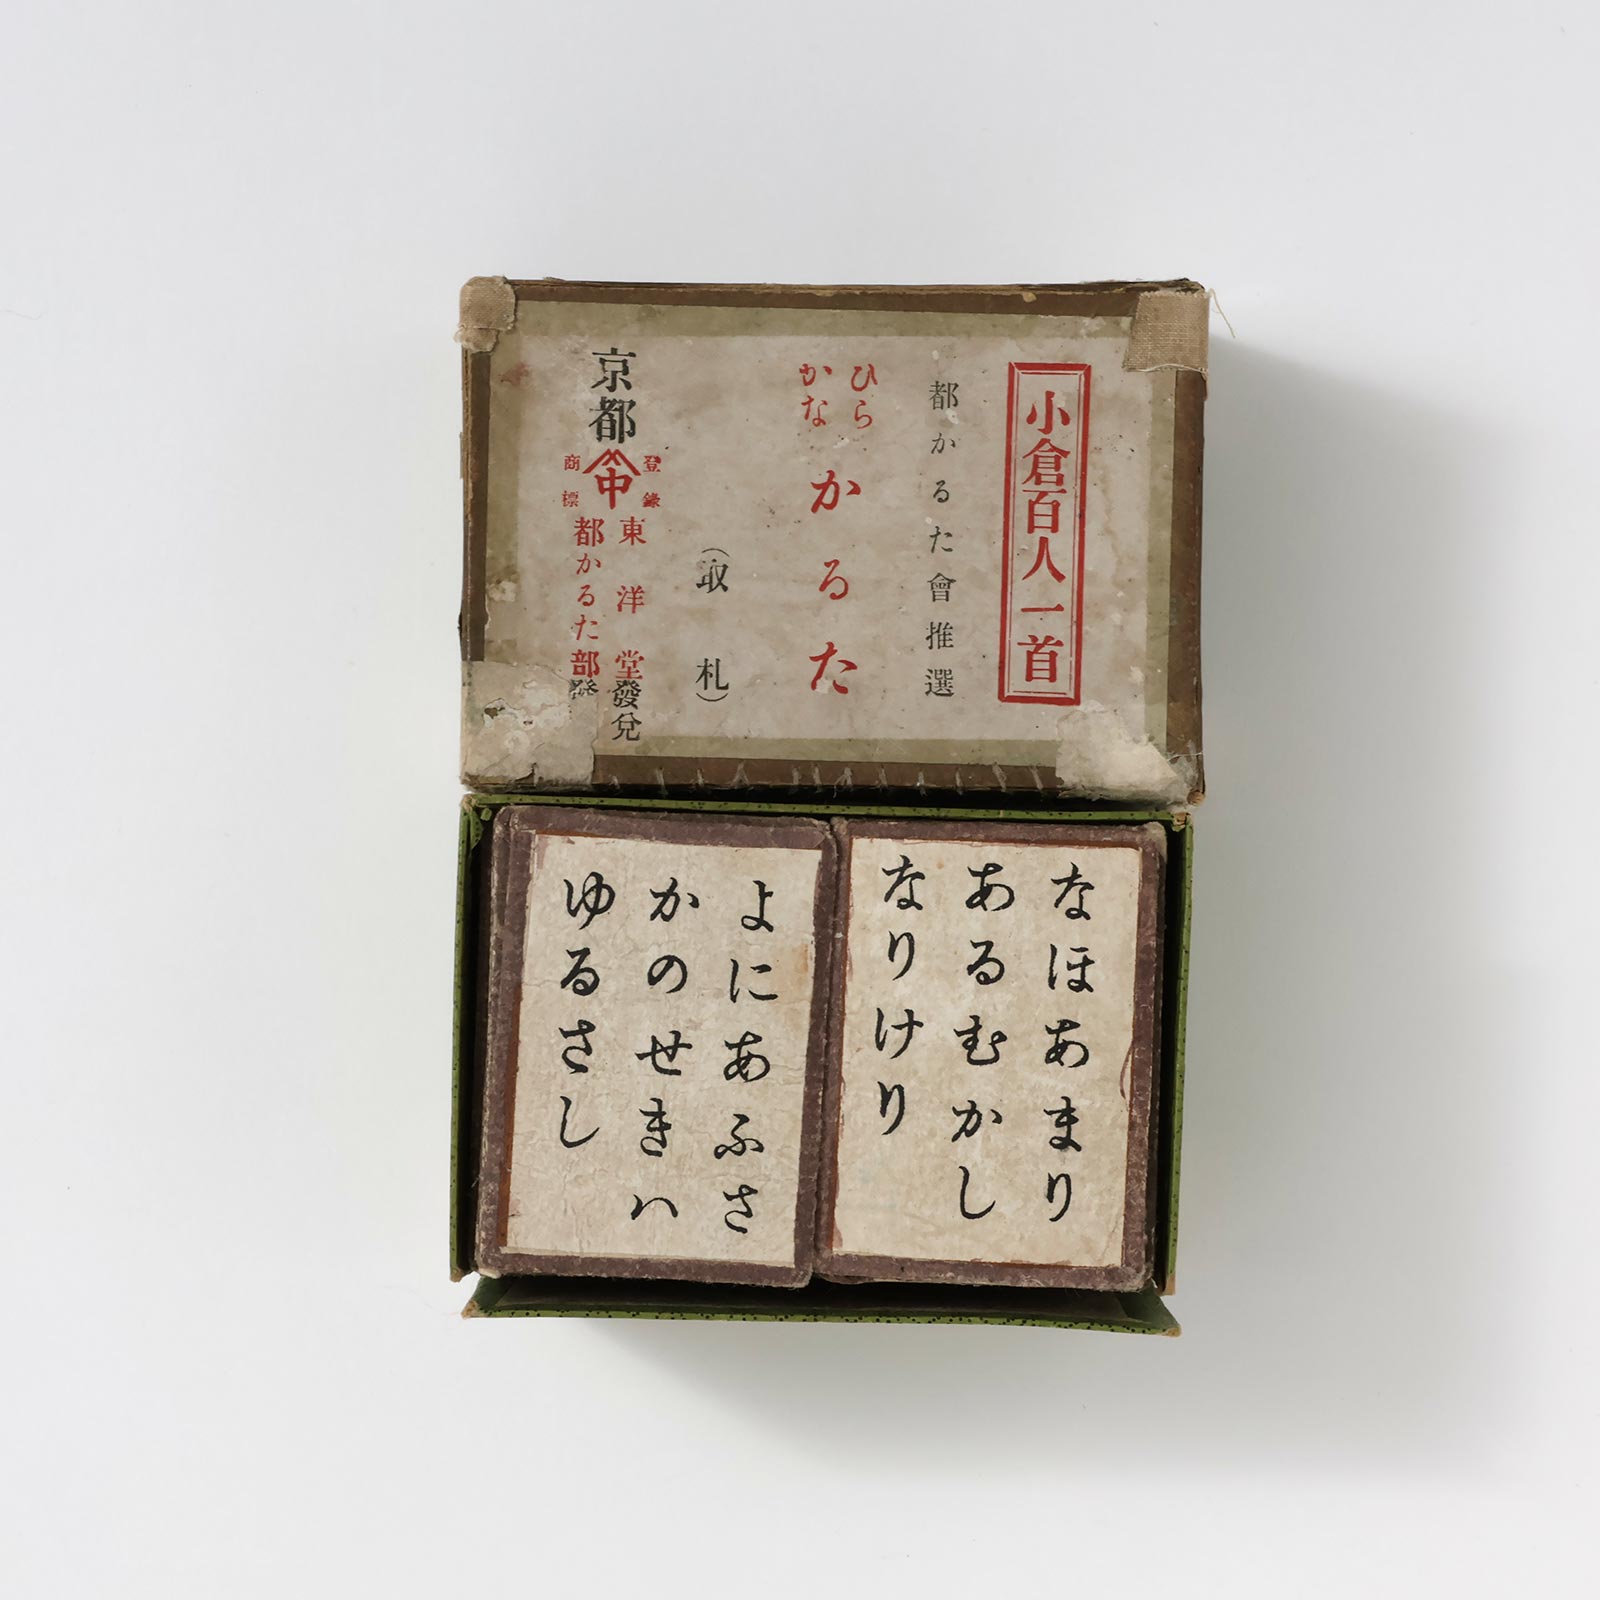 小倉百人一首
都かるた會推選
ひらかな
かるた
（取札）
京都
登錄
商標
中
東洋堂發兌
都かるた部發
なほあまり
あるむかし
なりけり
よにあふさ
かのせきハ
ゆるさし